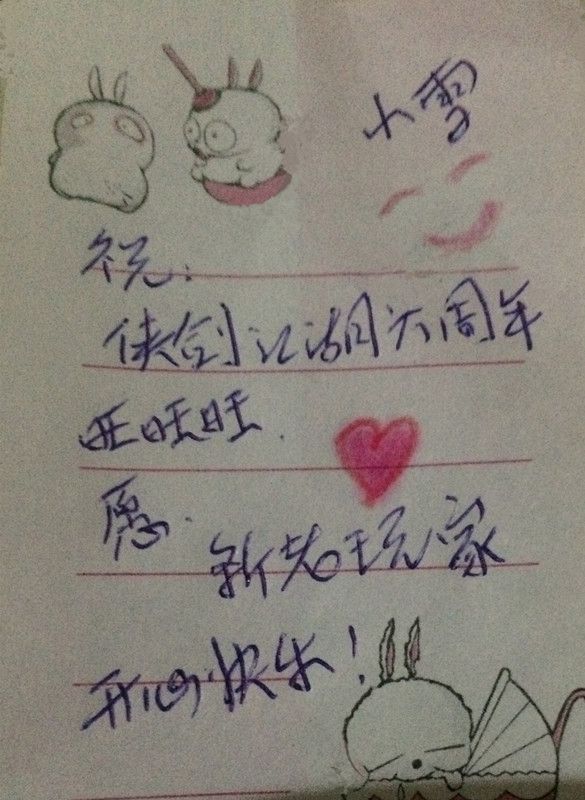 小雪
祝:
侠剑江湖六周年
旺旺旺.
愿.
新老玩家
开心快乐！